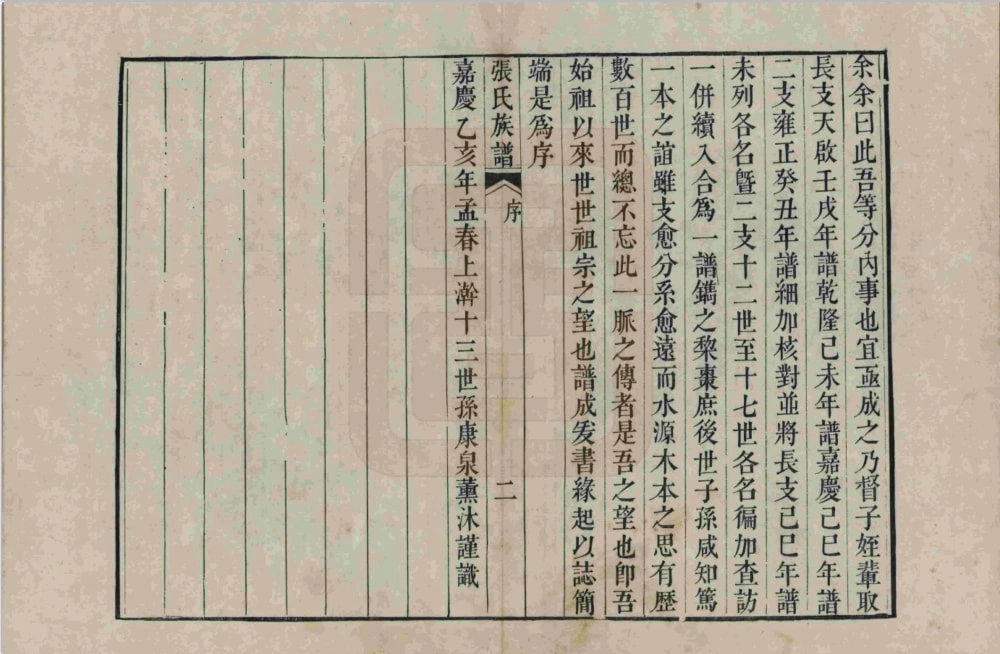 余余曰此吾等分內事也宜亟成之乃督子姪輩取
長支天啟壬戌年譜乾隆己未年譜嘉慶己巳年譜
二支雍正癸丑年譜細加核對並將長支己巳年譜
未列各名曁二支十二世至十七世各名徧加查訪
一併續入合爲一譜鐫之棃棗庶後世子孫咸知篤
一本之誼雖支愈分系愈遠而水源木本之思有歷
數百世而總不忘此一脈之傳者是吾之望也卽吾
始祖以來世世祖宗之望也譜成爰書緣起以誌簡
端是爲序
張氏族譜 序 二
嘉慶乙亥年孟春上澣十三世孫康泉薰沐謹識